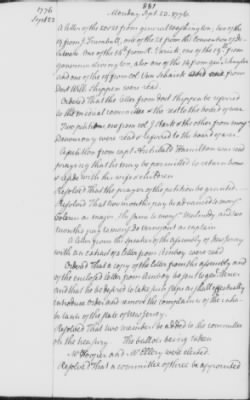 1776
Sept 23
881
Monday Sept. 23. 1776.
A letter of the 20 & 21 from general Washington, two of the
19 from J Trumbull, one of the 21 from the Convention of
one of the 16th from R. Varick, one of the 19th from
governor Livingston, also one of the 14 from genl Schuyler
and one of the 19 from col Van Schaick and one from
Doct Wm Shippen were read.
Ordered That the letter from Doct Shippen be referred
to the medical committee & the rest to the board of war.
Two petitions one from col J Stark & the other from
were read & referred to the board of war
A petition from capt Archibald Hamilton was read
praying that he may be permitted to return home
& reside with his wife & children
Resolved That the prayer of the petition be granted
Resolved That two months pay be advanced to monsr
as major, the same to monsr and two
months pay to as captain
A letter from the speaker of the assembly of new Jersey
with an extract of a letter from Amboy were read
Ordered That a copy of the letter from the assembly and
of the enclosed letter from Amboy be sent to genl Mercer
and that he be desired to take such steps as shall effectually
introduce order and remove the complaints of the inha-
bitants of the state of new Jersey.
Resolved That two members be added to the committee
on the treasury. The ballots being taken
Mr Hooper and Mr Ellery were elected.
Resolved That a committee of three be appointed